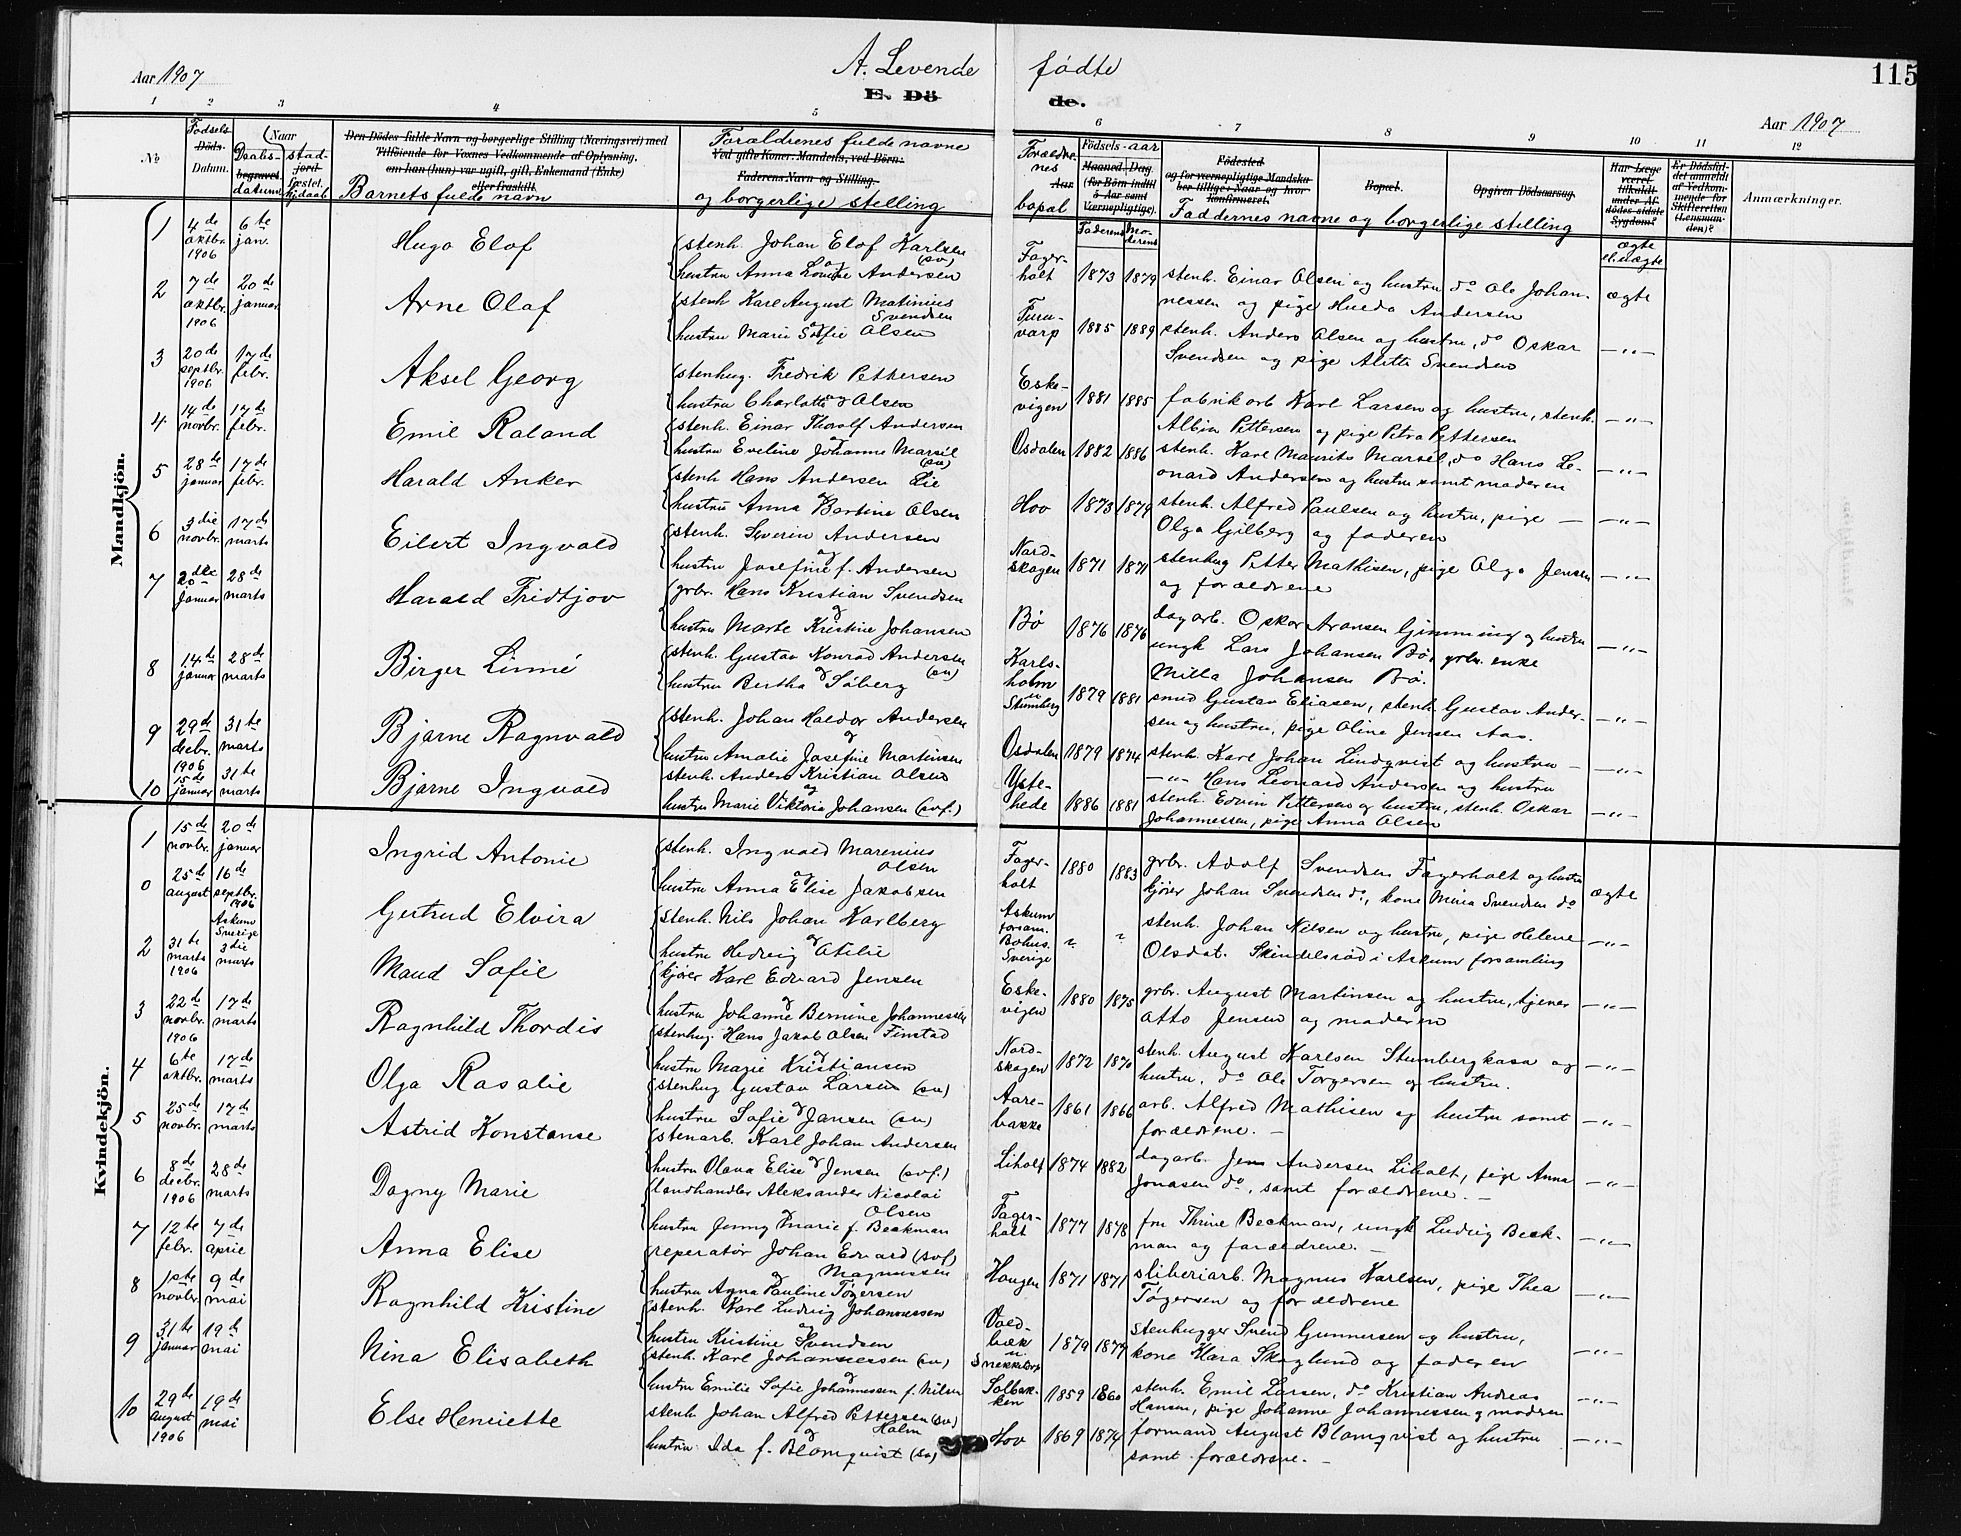 Aar 1907
A. Levende fødte
E. Dö de.
115
Aar 1907
1 2 3 4 5 6 7 8 9 10 11 12
№
Fødsels-
Döds-
Datum.
Naar
Daabs-
begravet
datum
stad-
jord-
fæstet.
hj.daab
Den Dödes fulde Navn og borgerlige Stilling (Næringsvei) med
Tilföiende for Voxnes Vedkommende af Oplysning,
om han (hun) var ugift, gift, Enkemand (Enke)
eller fraskilt.
Barnets fulde navn
Forældrenes fulde navne
Ved gifte Koner: Mandens, ved Börn:
Faderens Navn og Stilling.
og borgerlige stilling
Forældre-
nes
Aar
bopæl
Födsels-aar
Maaned, Dag
(for Börn indtil
5 Aar samt
Værnepligtige).
Faderens Moderens
Födested
og for værnepligtige Mandska-
ber tillige: Naar og hvor
konfirmeret.
Bopæl.
Opgiven Dödsaarsag.
Faddernes navne og borgerlige stilling
Har Læge
været
tilkaldt
under Af-
dödes sidste
Sygdom?
ægte
el. uægte
Er Dödsfal-
det anmeldt
af Vedkom-
mende for
Skifteretten
(Lensman-
den)?
Anmærkninger.
Mandkjön.
1 4de oktbr. 1906 6te jan. Hugo Elof
(stenh. Johan Elof Karlsen (sv)
og
hustru Anna Lovise Andersen
Fager-
holt 1873 1879 stenh. Einar Olsen og hustru do Ole Johan-
nessen og pige Hulda Andersen ægte
2 7de oktbr. 1906 20de januar Arne Olaf
(stenh. Karl August Matinius
Svendsen
og
hustru Marie Sofie Olsen
Furu-
varp 1885 1889 stenh. Anders Olsen og hustru, do Oskar
Svendsen og pige Alette Svendsen —"—
3 20de septbr. 1906 17de febr. Aksel Georg
(stenhug. Fredrik Pettersen
og
hustru Charlotte Olsen
Eske-
vigen 1881 1885 fabrikarb Karl Larsen og hustru, stenh.
Albin Pettersen og pige Petra Pettersen —"—
4 14de novbr. 17de febr. Emil Roland
(stenh. Einar Thorolf Andersen
og
hustru Eveline Johanne Marsel (sv)
Osdalen 1882 1886 stenh. Karl Maurits Marsél, do Hans Le-
onard Andersen og hustru samt moderen —"—
5 28de januar 17de febr. Harald Anker
(stenh Hans Andersen Lie
og
hustru Anna Bertine Olsen
Hov 1873 1879 stenh. Alfred Paulsen og hustru, pige —
Olga Gilberg og faderen —"—
6 3die novbr. 17de marts Eilert Ingvald
(stenh. Severin Andersen
og
hustru Josefine f. Andersen
Nord-
skogen 1871 1871 stenhug Petter Mathisen, pige Olga Jensen
og forældrene —"—
7 januar 28de marts Harald Fridtjov
(grbr. Hans Kristian Svendsen
og
hustru Marte Kristine Johansen
Bø 1876 1876 dagarb. Oskar Aronsen Gimming og hustru
ungk Lars Johansen Bø, grbr. enke
Milla Johansen Bø. —"—
8 14de januar 28de marts Birger Linné
(stenh. Gustav Konrad Andersen (sv)
og
hustru Bertha Søberg
Karls-
holm
u
Stumberg 1879 1881 smed Gustav Eliasen, stenh. Gustav Ander-
sen og hustru, pige Oline Jensen Aas. —"—
9 29de decbr. 1906 31te marts Bjarne Ragnvald
(stenh. Johan Haldor Andersen
og
hustru Amalie Josefine Martinsen
Osdalen 1879 1874 stenh. Karl Johan Lindqvist og hustru —
—"— Hans Leonard Andersen og hustru —"—
10 15de januar 31te marts Bjarne Ingvald
stenh. Anders Kristian Olsen
og
hustru Marie Viktoria Johansen (svf.)
Yste-
hede 1886 1881 stenh. Edvin Pettersen og hustru, stenh. Oskar
Johannessen, pige Anna Olsen —"—
Kvindekjön.
1 15de novbr. 20de januar Ingrid Antonie
(stenh. Ingvald Marenius
Olsen
og
hustru Anna Elise Jakobsen
Fager-
holt 1880 1883 grbr. Adolf Svendsen Fagerholt og hustru
kjører Johan Svendsen do, kone Mina Svendsen do ægte
0 25de august 16de septbr. 1906 Askum Sverige Gertrud Elvira
(stenh. Nils Johan Karlberg
og
hustru Hedvig Otilie
Askum
forsam.
Bohus.
Sverige " " stenh. Johan Nilsen og hustru, pige Helene
Olsdat. Skindelsrød i Askum forsamling —"—
2 31te marts 1906 3die marts Maud Sofie
(kjører Karl Edvard Jensen
og
hustru Johanne Bernine Johannessen
Eske-
vigen 1880 1875 grbr. August Martinsen og hustru, tjener
Otto Jensen og moderen —"—
3 22de novbr. 1906 17de marts Ragnhild Thordis
(stenhug. Hans Jakob Olsen Finstad
og
hustru Marie Kristiansen
Nord-
skogen 1872 1870 stenh. August Karlsen Stumbergkasa og
hustru, do Ole Torgersen og hustru. —"—
4 6te oktbr. 17de marts Olga Rosalie
(stenhug Gustav Larsen (sv)
og
hustru Sofie Jansen (sv)
Aare-
bakke 1861 1866 arb. Alfred Mathisen og hustru samt
forældrene. — —"—
5 25de novbr. 17de marts Astrid Konstanse
(stenarb. Karl Johan Andersen
og
hustru Olava Elise Jensen (svf.)
Liholt 1874 1882 dagarb. Jens Andersen Liholt, pige Anna
Jonasen do, samt forældrene. — —"—
6 8de decbr. 1906 28de marts Dagny Marie
(landhandler Aleksander Nicolai
Olsen
og
hustru Jenny Marie f. Beckman
Fager-
holt 1877 1878 fru Thrine Beckman, ungk Ludvig Beck-
man og forældrene. — —"—
7 12te febr. 7de april Anna Elise
(reperatør Johan Edvard (svf)
Magnussen
og
hustru Anna Pauline Tøgersen
Haugen 1871 1871 sliberiarb. Magnus Karlsen, pige Thea
Tøgersen og forældrene —"—
8 1ste novbr. 9de mai Ragnhild Kristine
(stenh. Karl Ludvig Johannessen
og
hustru Kristine Svendsen
Vold-
bæk
u
Snekketorp 1879 1879 stenhugger Svend Gunnersen og hustru,
kone Klara Skoglund og faderen —"—
9 31te januar 19de mai Nina Elisabeth
(stenh. Karl Johannessen (sv)
og
hustru Emilie Sofie Johannessen f. Nilsen
Solbak-
ken 1859 1860 stenh. Emil Larsen, do Kristian Andreas
Hansen, pige Johanne Johannessen og moderen —"—
10 29de august 1906 19de mai Else Henriette
stenh Johan Alfred Pettersen (sv)
Holm
og
hustru Ida f. Blomquist (sv)
Hov 1869 1874 formand August Blomqvist og hustru
samt forældrene. — —"—